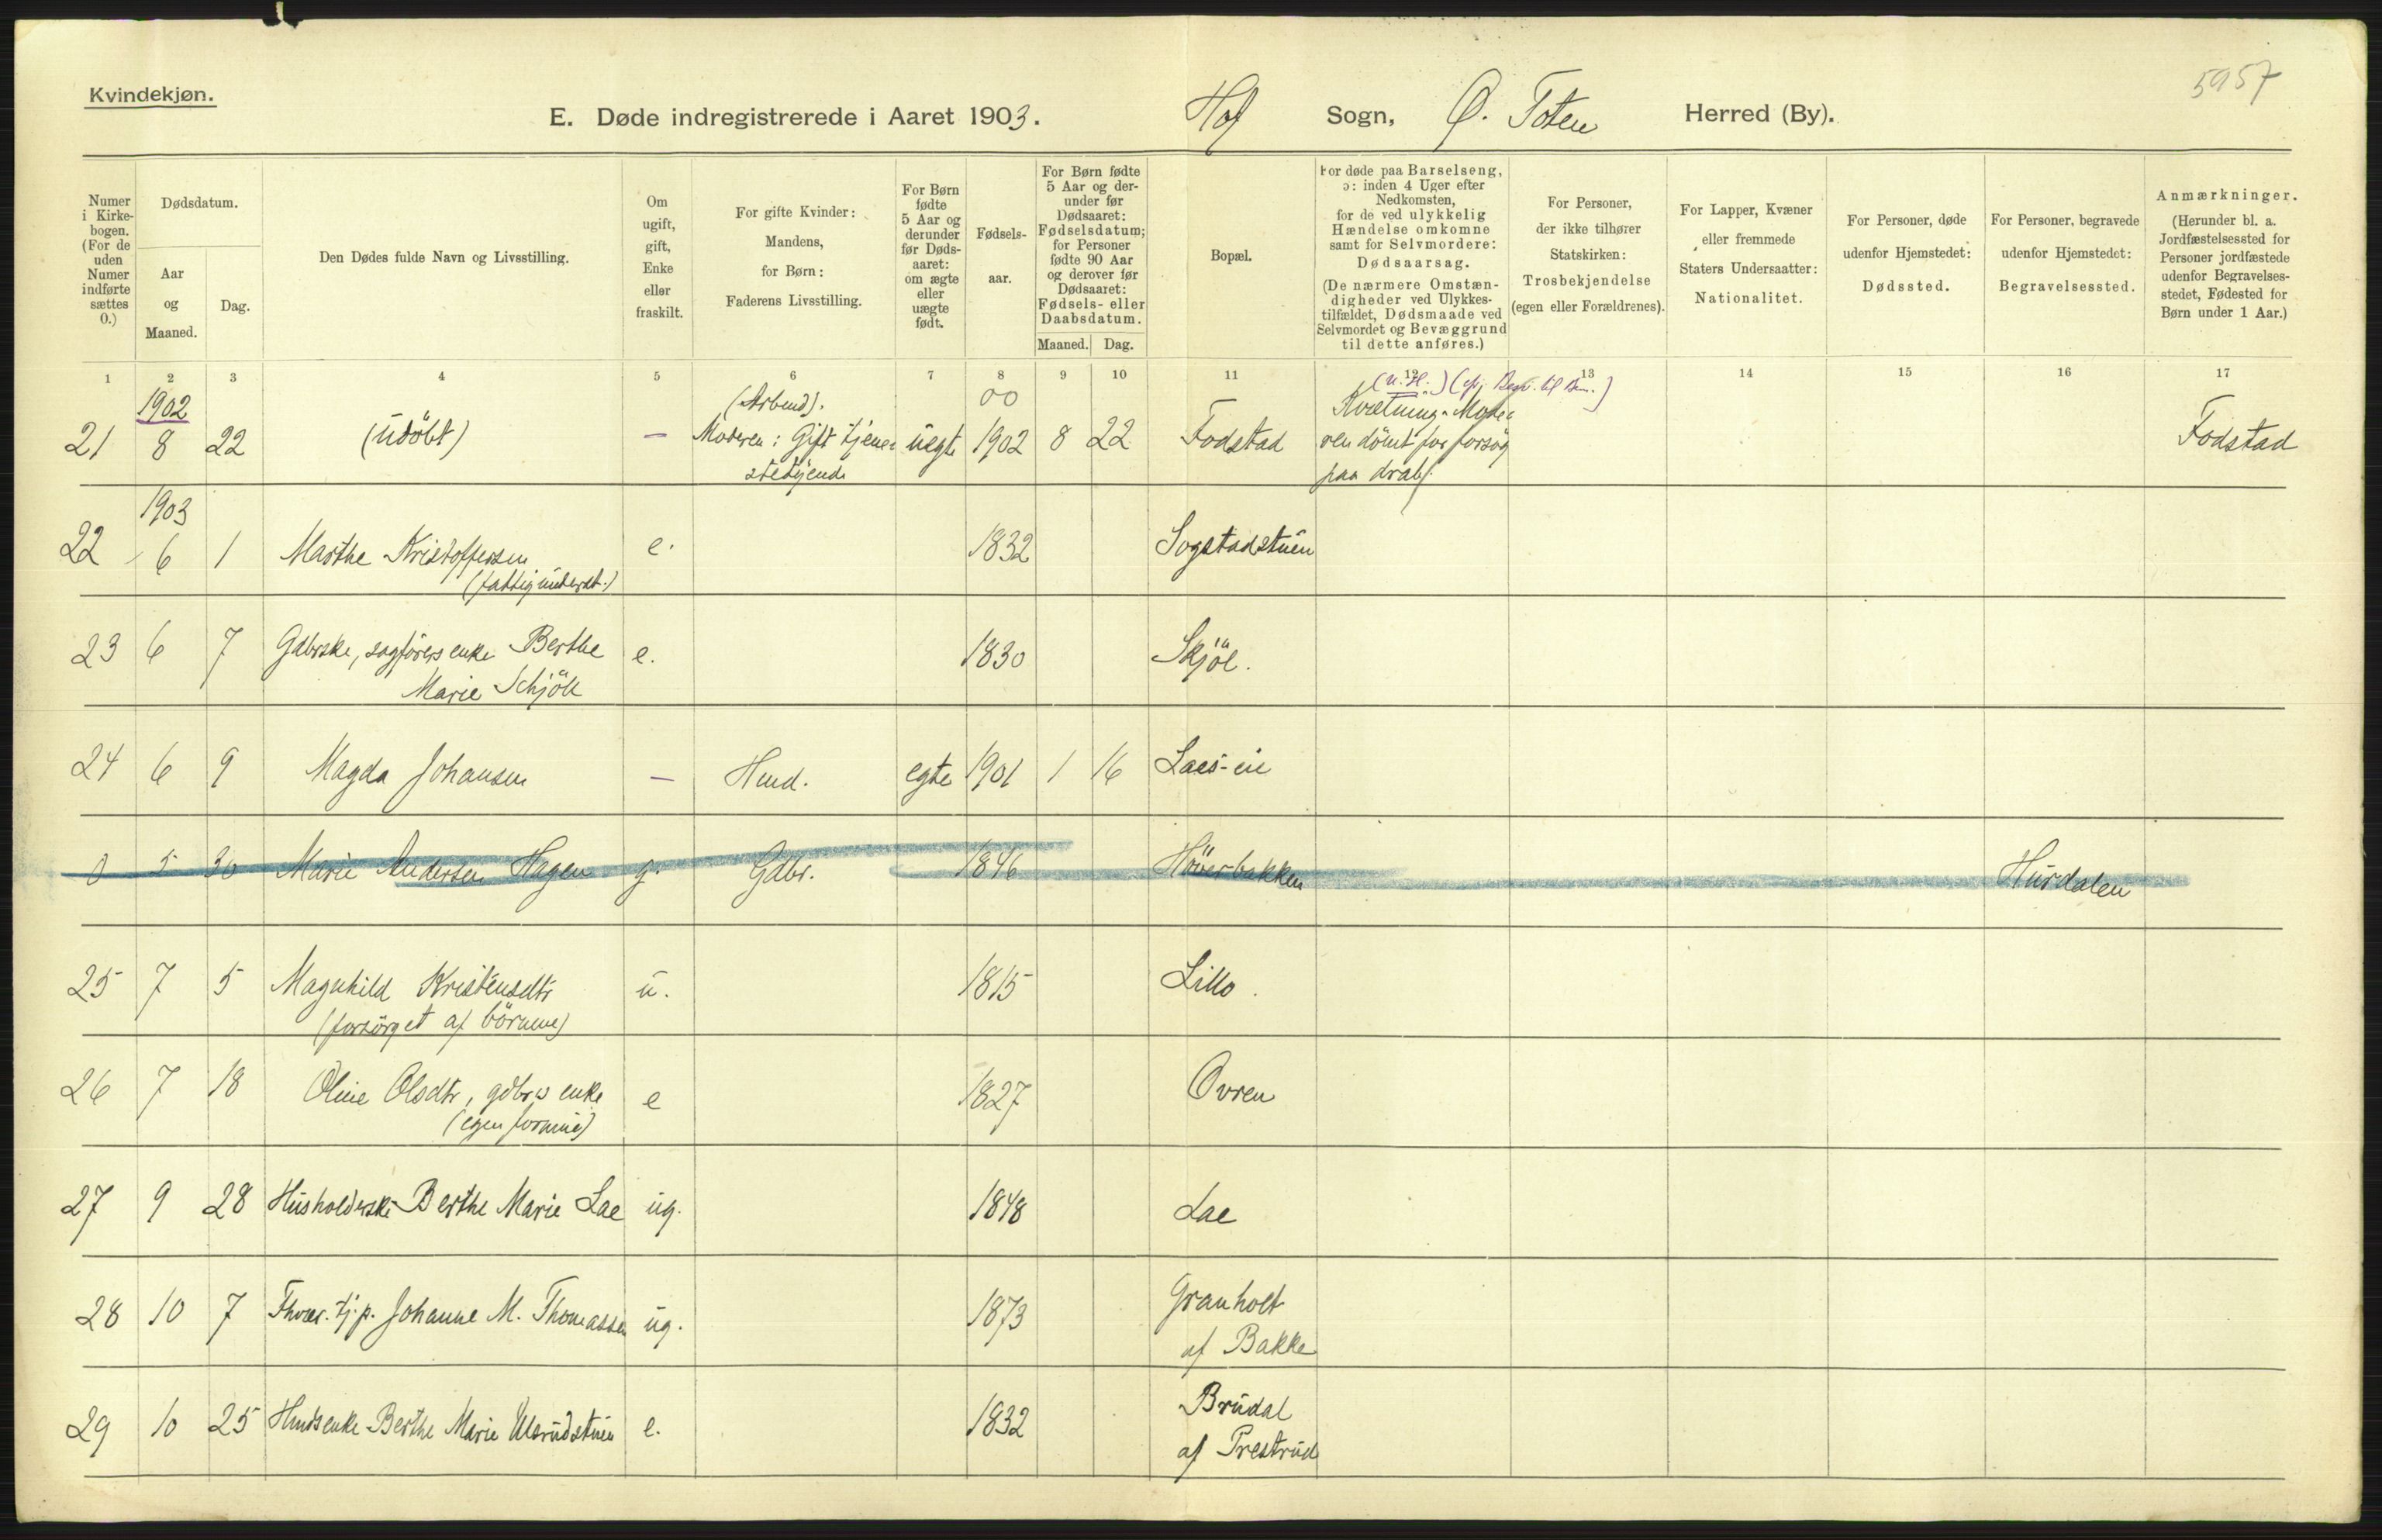 Kvindekjøn.
5957
E. Døde indregistrerede i Aaret 1903. Hof Sogn, Ø. Toten Herred (By).
Numer i Kirke-bogen. (For de uden Numer indførte sættes 0.)
Dødsdatum.
Aar og Maaned.
Dag.
Den Dødes fulde Navn og Livsstilling.
Om ugift, gift, Enke eller fraskilt.
For gifte Kvinder: Mandens, for Børn: Faderens Livsstilling.
For Børn fødte 5 Aar og derunder før Døds-aaret: om ægte eller uægte født.
Fødsels-aar.
For Børn fødte 5 Aar og der-under før Dødsaaret: Fødselsdatum; for Personer fødte 90 Aar og derover før Dødsaaret: Fødsels- eller Daabsdatum.
Maaned. Dag.
Bopæl.
For døde paa Barselseng, ɔ: inden 4 Uger efter Nedkomsten, for de ved ulykkelig Hændelse omkomne samt for Selvmordere: Dødsaarsag. (De nærmere Omstæn-digheder ved Ulykkes-tilfældet, Dødsmaade ved Selvmordet og Bevæggrund til dette anføres.)
For Personer, der ikke tilhører Statskirken: Trosbekjendelse (egen eller Forældrenes).
For Lapper, Kvæner eller fremmede Staters Undersaatter: Nationalitet.
For Personer, døde udenfor Hjemstedet: Dødssted.
For Personer, begravede udenfor Hjemstedet: Begravelsessted.
Anmærkninger. (Herunder bl. a. Jordfæstelsessted for Personer jordfæstede udenfor Begravelses-stedet, Fødested for Børn under 1 Aar.)
1 2 3 4 5 6 7 8 9 10 11 12 13 14 15 16 17
1902 (Arbeid). 00
21 8 22 (udöbt) — Moderen: Gift tjene- uegte 1902 8 22 Fodstad Kvælning. Mode- Fodstad
stedyende ren dömt for forsög
paa drab.
1903
22 6 1 Marthe Kristoffersen e. 1832 Sogstadstuen
(fattigunderst.)
23 6 7 Gdbrske, sagförers enke Berthe e. 1830 Skjöl.
Marie Schjöll
24 6 9 Magda Johansen — Hmd. egte 1901 1 16 Laes-eie
0 5 30 Marie Andersen Hagen g. Gdbr. 1846 Höverbakken Hurdalen
25 7 5 Magnhild Kristensdtr u. 1815 Lillo.
(forsörget af börnene)
26 7 18 Oline Olsdtr, gdbrs enke e 1827 Ovren
(egen formue)
27 9 28 Husholderske Berthe Marie Lae ug. 1848 Lae
28 10 7 Fhvær. tj.p. Johanne M. Thomassen ug. 1873 Granholt
af Bakke
29 10 25 Hmdsenke Berthe Marie Ulsrudstuen e. 1832 Brudal
af Prestrud